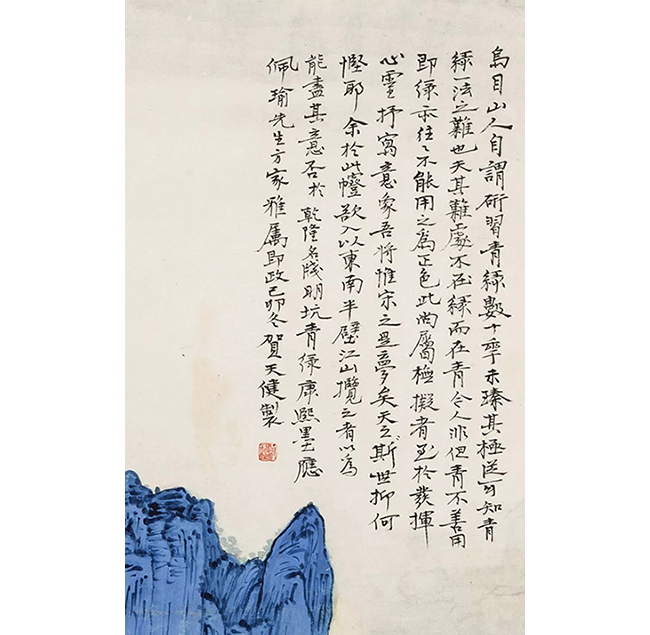 烏目山人自謂研習青綠數十年未臻其極遂可知青
綠一法之難也夫其難處不在綠而在青今人非但青不善用
即綠亦往々不能用之為正色此尚屬極擬者至於發揮
心靈抒寫意象吾將惟宋之是夢矣天之斯世抑何
慳耶余於此幢欲入以東南半壁江山攬之者以為
能盡其意否於乾隆名牋明坑青綠康熙墨應
佩瑜先生方家雅屬即政己卯冬賀天健製